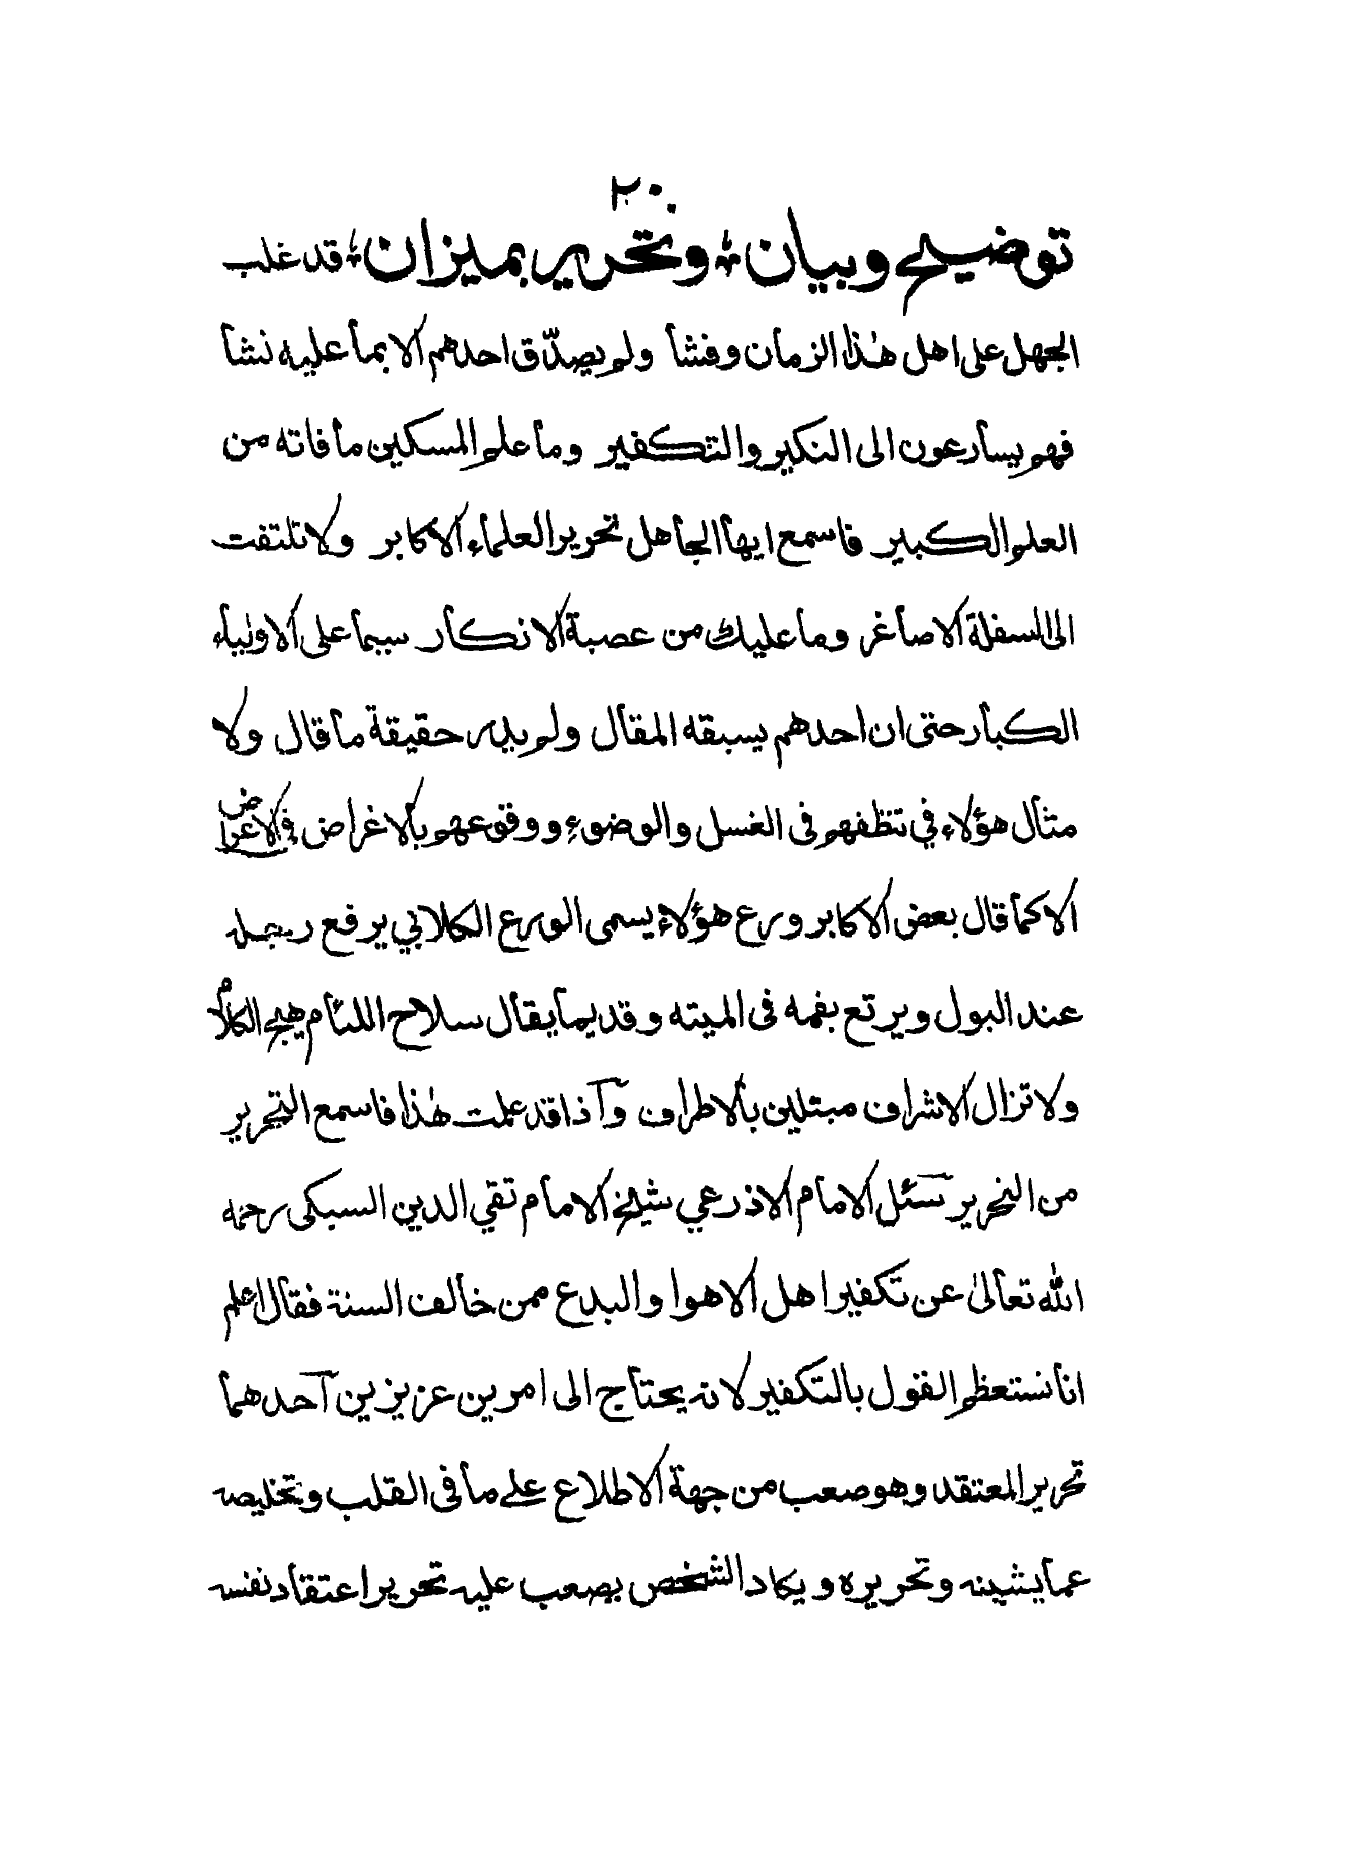 ٢٠
توضيح وبيان ؛ وتحرير بميزان ؛ قد غلب
الجهل على اهل هذا الزمان وفشأ ولم يصدّق احدهم الا بمأ عليه نشأ
فهم يسأرعون الى النكير والتكفير ومأ علم المسكين مأ فاته من
العلم الكبير فاسمع ايهأ الجأهل تحرير العلمأء الاكابر ولا تلتفت
الى السفلة الاصأغر وما عليك من عصبة الانكأر سيمأ على الاوليأء
الكبأر حتى ان احدهم يسبقه المقأل ولم يدر حقيقة مأ قأل ولا
مثأل هؤلاء في تنظفهم فى الغسل والوضوء ووقوعهم بألاغراض في الاعراض
الا كمأ قأل بعض الاكابر ورع هؤلاء يسمى الورع الكلابي يرفع رجله
عند البول ويرتع بفمه فى الميته وقديمأ يقأل سلاح اللئأم هيج الكلام
ولا تزأل الاشراف مبتلين بألاطراف وآذا قد علمت هٰذا فاسمع التحرير
من النحرير سئل الامأم الاذرعي شيخ الامأم تقي الدين السبكى رحمه
الله تعألىٰ عن تكفير اهل الاهوا والبدع ممن خالف السنة فقأل اعلم
انأ نستعظم القول بالتكفير لانه يحتأج الى امرين عزيزين آحدهمأ
تحرير المعتقد وهو صعب من جهة الاطلاع على مأ فى القلب وتخليصه
عمأ يشينه وتحريره ويكاد الشخص يصعب عليه تحرير اعتقأد نفسه